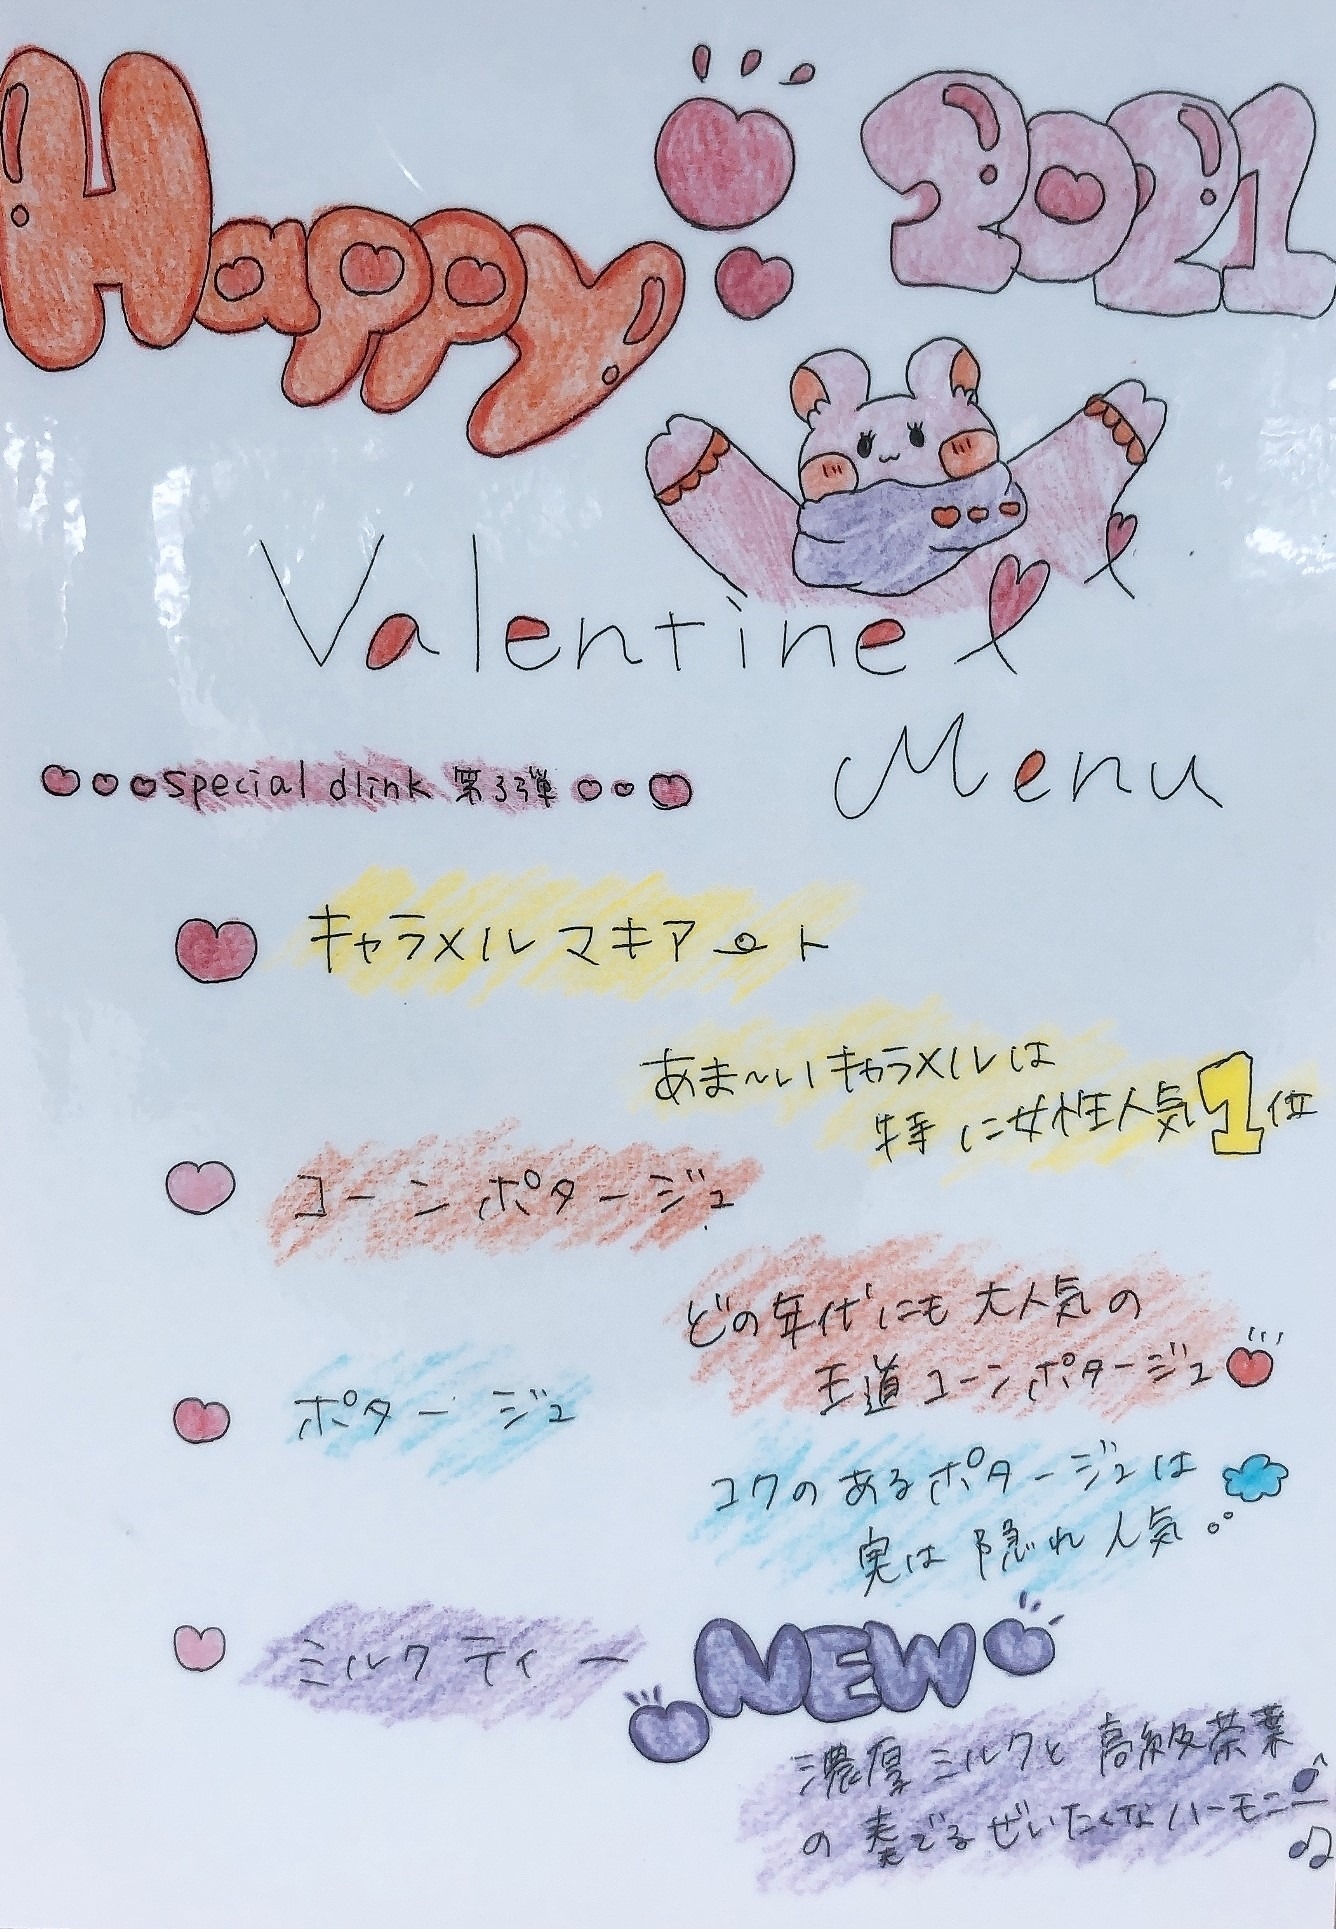 Happy 2021
Valentine
Menu
special dlink 第3弾
キャラメルマキアート
あま〜いキャラメルは
特に女性人気1位
コーンポタージュ
どの年代にも大人気の
王道コーンポタージュ
ポタージュ
コクのあるポタージュは
実は隠れ人気
ミルクティー NEW
濃厚ミルクと高級茶葉
の奏でるぜいたくなハーモニー